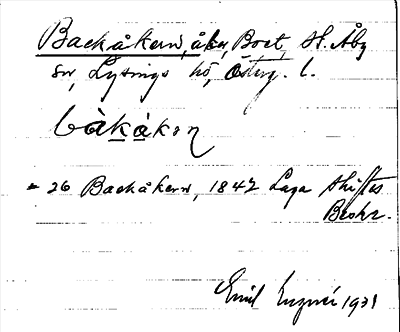 Backåkern, åker, Boet, St. Åby
sn, Lysings hd, Österg. l.
bàkåkon
26 Backåkern, 1842 Laga Skiftes
Beskr.
Emil 1931